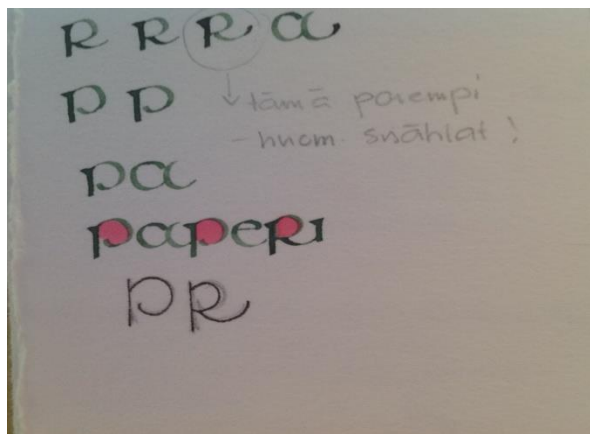 R R R a
p p ↓ tämä parempi
- huom. snählat!
pa
paperi
p R